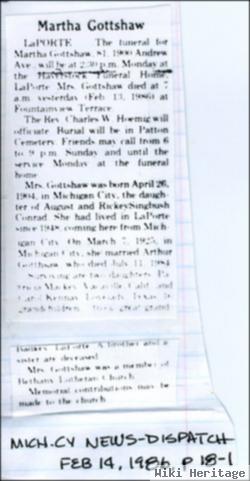 Martha Gottshaw
LaPORTE The funeral for
Martha Gottshaw, 81, 1900 Andrew
Ave., will be at 2:30 p.m. Monday at
the Haverstock Funeral Home,
LaPorte. Mrs. Gottshaw died at 7
a.m. yesterday (Feb. 13, 1986) at
Fountainview Terrace.
The Rev. Charles W. Hoemig will
officiate. Burial will be in Patton
Cemetery. Friends may call from 6
to 9 p.m. Sunday and until the
service Monday at the funeral
home.
Mrs. Gottshaw was born April 26,
1904, in Michigan City, the daugh-
ter of August and Rickey Singbush
Conrad. She had lived in LaPorte
since 1948, coming here from Mich-
igan City. On March 7, 1925, in
Michigan City, she married Arthur
Gottshaw, who died July 11, 1984.
Surviving are two daughters,
grandchildren great grand
LaPorte. A brother and a
sister are deceased.
Mrs. Gottshaw was a member of
Bethany Lutheran Church.
Memorial contributions may be
made to the church.
MICH. CY NEWS-DISPATCH
FEB 14, 1986 P 18-1
Wiki Heritage